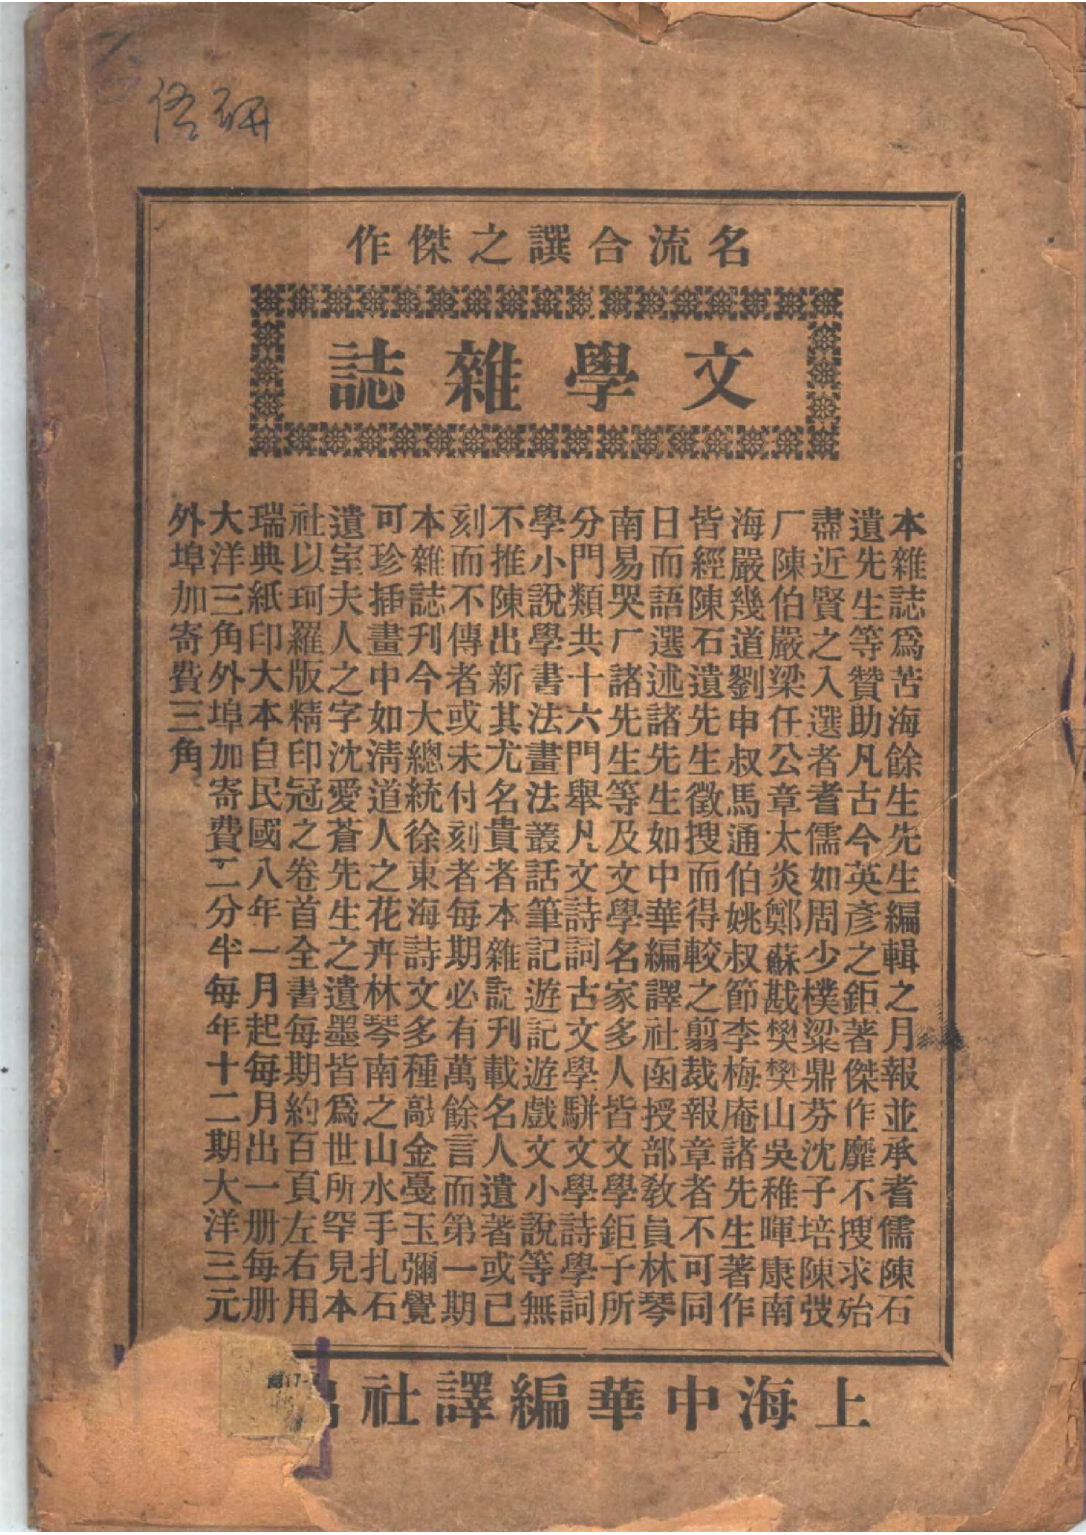 名流合譔之傑作
文學雜誌
本雜誌爲苦海餘生先生編輯之月報並承耆儒陳石
遺先生等贊助凡古今英彥之鉅著傑作靡不搜求殆
盡近賢之入選者耆儒如周少樸梁鼎芬沈子培陳弢
厂陳伯嚴梁任公章太炎鄭蘇戡樊樊山吳稚暉康南
海嚴幾道劉申叔馬通伯姚叔節李梅庵諸先生著作
皆經陳石遺先生徵搜而得較之翦裁報章者不可同
日而語選述諸先生如中華編譯社函授部敎員林琴
南易哭厂諸先生等及文學名家多人皆文學鉅子所
分門類共十六門舉凡文詩詞古文學駢文學詩學詞
學小說學書法畫法叢話筆記遊記遊戲文小說等無
不推陳出新其尤名貴者本雜誌刊載名人遺著或已
刻而不傳者或未付刻者每期必有萬餘言而第一期
本雜誌刊今大總統徐東海詩文多種敲金戛玉彌覺
可珍揷畫中如淸道人之花卉林琴南之山水手扎石
遺室夫人之字沈愛蒼先生之遺墨皆爲世所罕見本
社以珂羅版精印冠之卷首全書每期約百頁左右用
瑞典紙印大本自民國八年一月起每月出一册每册
大洋三角外埠加寄費二分半每年十二期大洋三元
外埠加寄費三角
上海中華編譯社